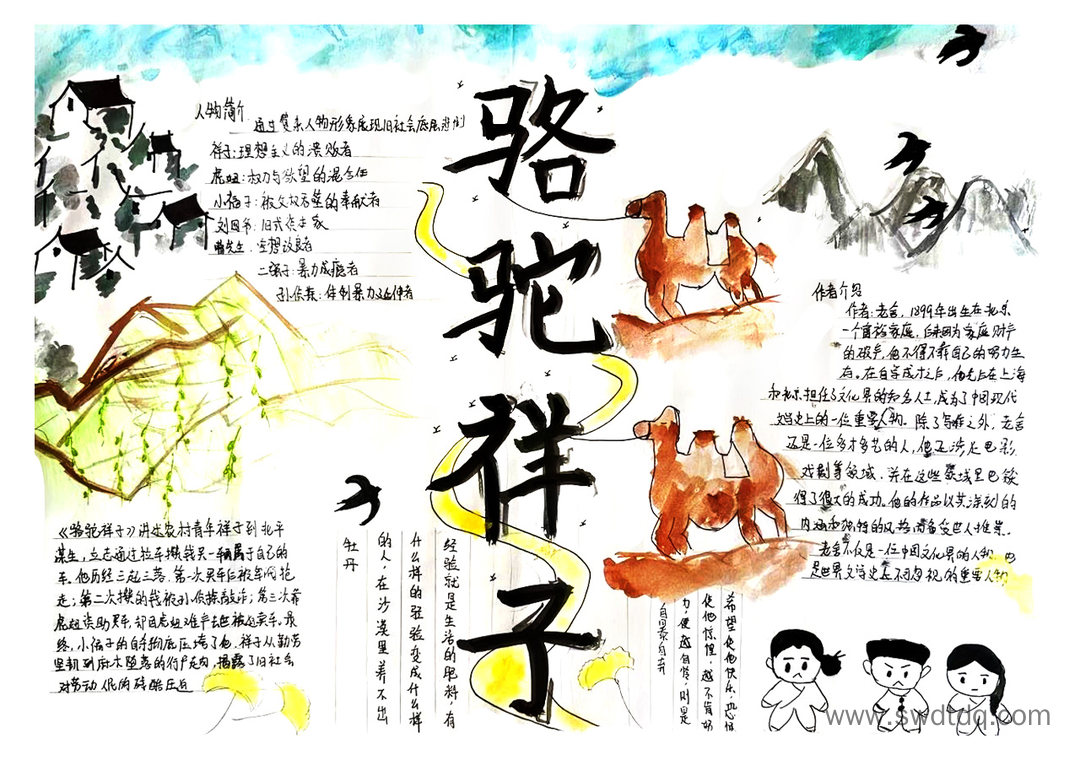 骆驼祥子
人物简介
通过复杂人物形象展现旧社会底层
祥子:理想主义的溃败者
虎妞:权力与欲望的混合体
小福子:被父权吞噬的奉献者
刘四爷:旧式
曹先生:空想改良者
二强子:暴力成瘾者
孙侦探:体制暴力延伸者
作者介绍
作者:老舍,1899年出生在北京
一个贫穷家庭,后来因为家庭财产
的破产,他不得不靠自己的努力生
存。在自学成才之后,他先后在上海
和北京担任了文化界的知名人士,成为了中国现代
文学史上的一位重要人物。除了写作之外,老舍
还是一位多才多艺的人,他还涉足电影、
戏剧等领域,并在这些领域里也获
得了很大的成功。他的作品以其深刻的
内涵和独特的风格而备受世人推崇。
老舍不仅是一位中国文化界的人物,也
是世界文学史上不可忽视的重要人物
《骆驼祥子》讲述农村青年祥子到北平
谋生,立志通过拉车攒钱买一辆属于自己的
车。他历经三起三落:第一次买车后被军阀抢
走;第二次攒的钱被孙侦探敲诈;第三次靠
虎妞资助买车,却因虎妞难产去世被迫卖车。最
终,小福子的自杀彻底压垮了他,祥子从勤劳
坚韧到麻木堕落的行尸走肉,揭露了旧社会
对劳动人民的残酷压迫
经验就是生活的肥料,有
什么样的经验变成什么样
的人,在沙漠里养不出
牡丹
希望使他快乐,恐惧
使他惊惶,越不肯努
力,便越自贷,则是
自暴自弃
www.swdtdq.com